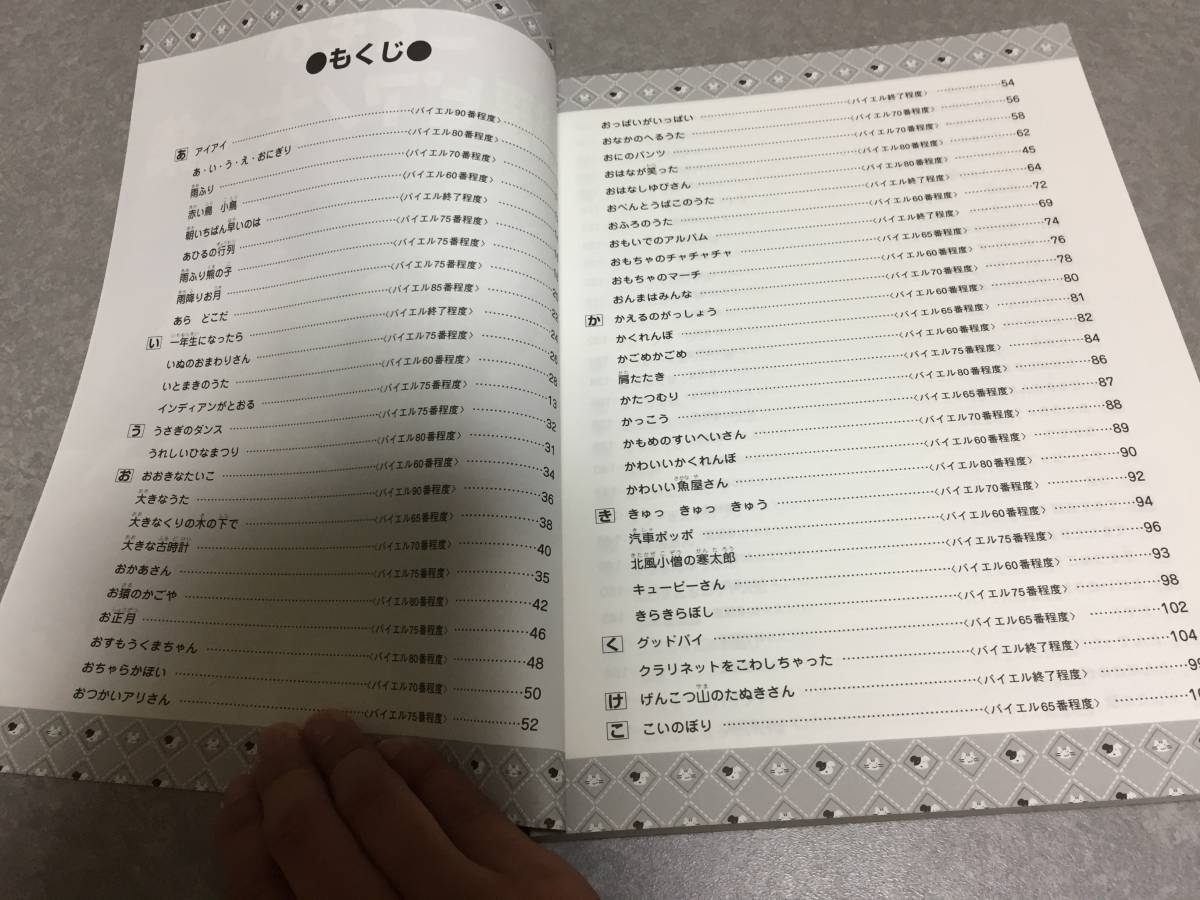 ●もくじ●
あ アイアイ 〈バイエル90番程度〉
あ・い・う・え・おにぎり 〈バイエル80番程度〉
雨ふり 〈バイエル70番程度〉
赤い鳥 小鳥 〈バイエル60番程度〉
朝いちばん早いのは 〈バイエル終了程度〉
あひるの行列 〈バイエル75番程度〉
雨ふり熊の子 〈バイエル75番程度〉
雨降りお月 〈バイエル75番程度〉
あら どこだ 〈バイエル85番程度〉
い 一年生になったら 〈バイエル終了程度〉 24
いぬのおまわりさん 〈バイエル75番程度〉 26
いとまきのうた 〈バイエル60番程度〉 28
インディアンがとおる 〈バイエル75番程度〉 13
う うさぎのダンス 〈バイエル75番程度〉 32
うれしいひなまつり 〈バイエル80番程度〉 31
お おおきなたいこ 〈バイエル60番程度〉 34
大きなうた 〈バイエル90番程度〉 36
大きなくりの木の下で 〈バイエル65番程度〉 38
大きな古時計 〈バイエル70番程度〉 40
おかあさん 〈バイエル75番程度〉 35
お猿のかごや 〈バイエル80番程度〉 42
お正月 〈バイエル75番程度〉 46
おすもうくまちゃん 〈バイエル80番程度〉 48
おちゃらかほい 〈バイエル70番程度〉 50
おつかいアリさん 〈バイエル75番程度〉 52
おっぱいがいっぱい 〈バイエル終了程度〉 54
おなかのへるうた 〈バイエル70番程度〉 56
おにのパンツ 〈バイエル70番程度〉 58
おはなが笑った 〈バイエル80番程度〉 62
おはなしゆびさん 〈バイエル80番程度〉 45
おべんとうばこのうた 〈バイエル終了程度〉 64
おふろのうた 〈バイエル60番程度〉 72
おもいでのアルバム 〈バイエル終了程度〉 69
おもちゃのチャチャチャ 〈バイエル65番程度〉 74
おもちゃのマーチ 〈バイエル60番程度〉 76
おんまはみんな 〈バイエル70番程度〉 78
か かえるのがっしょう 〈バイエル60番程度〉 80
かくれんぼ 〈バイエル65番程度〉 81
かごめかごめ 〈バイエル60番程度〉 82
肩たたき 〈バイエル75番程度〉 84
かたつむり 〈バイエル80番程度〉 86
かっこう 〈バイエル65番程度〉 87
かもめのすいへいさん 〈バイエル70番程度〉 88
かわいいかくれんぼ 〈バイエル60番程度〉 89
かわいい魚屋さん 〈バイエル80番程度〉 90
き きゅっ きゅっ きゅう 〈バイエル70番程度〉 92
汽車ポッポ 〈バイエル60番程度〉 94
北風小僧の寒太郎 〈バイエル75番程度〉 96
キューピーさん 〈バイエル60番程度〉 93
きらきらぼし 〈バイエル75番程度〉 98
く グッドバイ 〈バイエル65番程度〉 102
クラリネットをこわしちゃった 〈バイエル終了程度〉 104
け げんこつ山のたぬきさん 〈バイエル終了程度〉 99
こ こいのぼり 〈バイエル65番程度〉